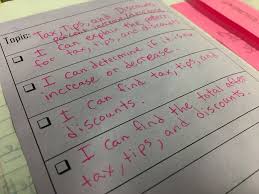 Topic: Tax, Tips, and Discounts
percent increase/decrease
I can explain the
for tax, tips, and discounts
I can determine if it is
increase or decrease.
I can find tax, tips, and
discounts.
I can find the total after
tax, tips, and discounts.